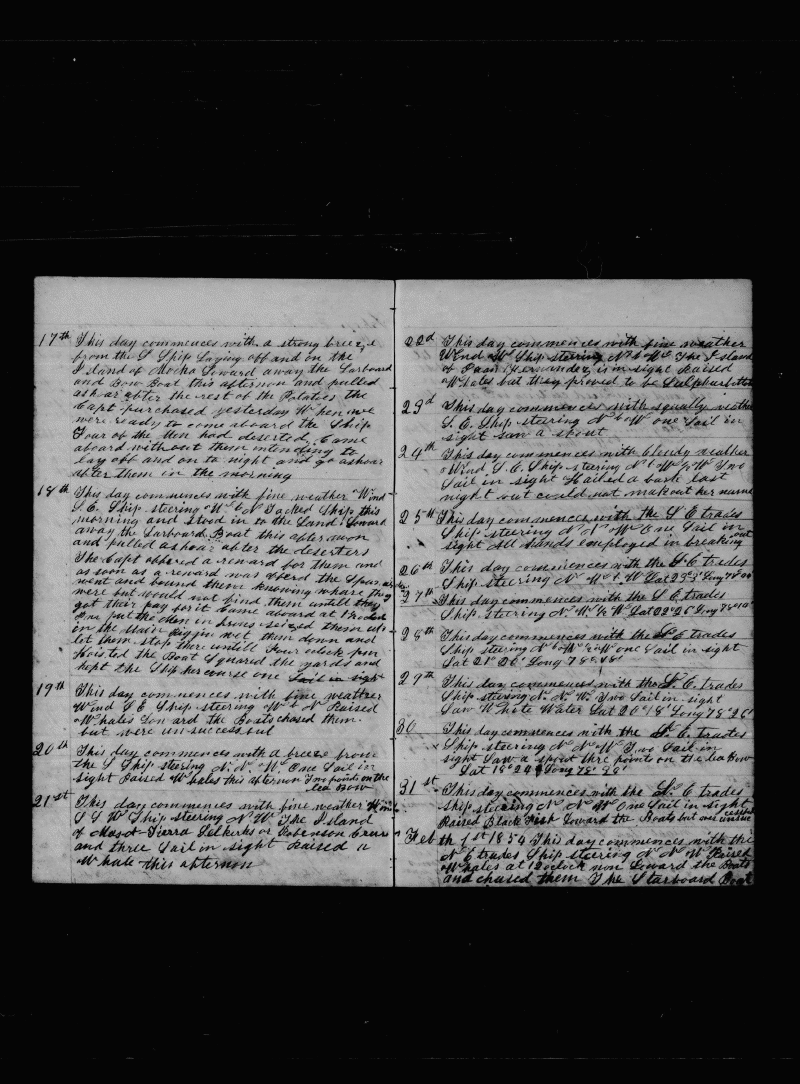 17th This day commences with a strong breeze
from the S Ship Laying off and on the
Island of Mocha Loward away the Larboard
and Bow Boat this afternoon and pulled
ashoar after the rest of the Potatoes the
Capt purchased yesterday When we
were ready to come aboard the Ship
Four of the Men had deserted Came
aboard without them intending to
lay off and on to night and go ashoar
after them in the morning
18th This day commences with fine weather Wind
S.E. Ship steering W b N Tacked Ship this
morning and stood in to the Land Loward
away the Larboard Boat this afternoon
and pulled ashoar after the deserters
The Capt offered a reward for them and
as soon as a reward was offerd the
went and bound them knowing whare they
were but would not find them untill they
got their pay for it Came aboard at 1 Oclock
put the Men in Irons seized them up
in the Main Riggin wet them down and
let them stop there untill Four oclock pm
Hoisted the Boat Squared the yards and
kept the Ship her course one Sail in sight
19th This day commences with fine weather
Wind S E Ship steering W b N Raised
Whales Loward the Boats chased them
but were unsuccessful
20th This day commences with a breeze from
the S Ship steering N. N. W. One Sail in
sight Raised Whales this afternoon Two points on the
lea Bow
21st This day commences with fine weather Wind
S S W Ship steering N W The Island
of Mas a Tierra Selkerks or Robenson Crusoe
and three Sail in sight Raised a
Whale this afternon
22d This day commences with fine weather
Wind Ship steering N b W The Island
of Juan Fernandez is in sight Raised
Whales but they proved to be Sulphurbottoms
23d This day commences with squally weather
S. E. Ship steering N b W one Sail in
sight Saw a spout
24th This day commences with cloudy weather
Wind S. E. Ship steering N b W ½ W Two
Sail in sight Hailed a bark last
night but could not makeout her name
25th This day commences with the S E trades
Ship steering N b W One Sail in
sight All hands employed in breaking out
26th This day commences with the S E trades
Ship steering N W Lat 23° 3' Long 78°
27th This day commences with the S E trades
Ship Steering N W ½ W Lat 22° 26' Long 78°
28th This day commences with the S E trades
Ship steering N b W ½ W one Sail in sight
Lat 21° 26' Long 78° 18'
29th This day commences with the S. E. trades
Ship steering N. N. W. Two Sail in sight
Saw White Water Lat 20° 18' Long 78° 26'
30 This day commences with the S. E. trades
Ship steering N N W Two Sail in
sight Saw a spout thre points on the lea Bow
Lat 18° 24 Long 78° 38'
31st This day commences with the S. E trades
Ship steering N N W One Sail in sight
Raised Black Fish Loward the Boats but one unsuccessful
Feb the 1st 1854 This day commences with the
S E trades Ship steering N N W Raised
Whales at 12 oclock non Loward the Boats
and chased them The Starboard Boat